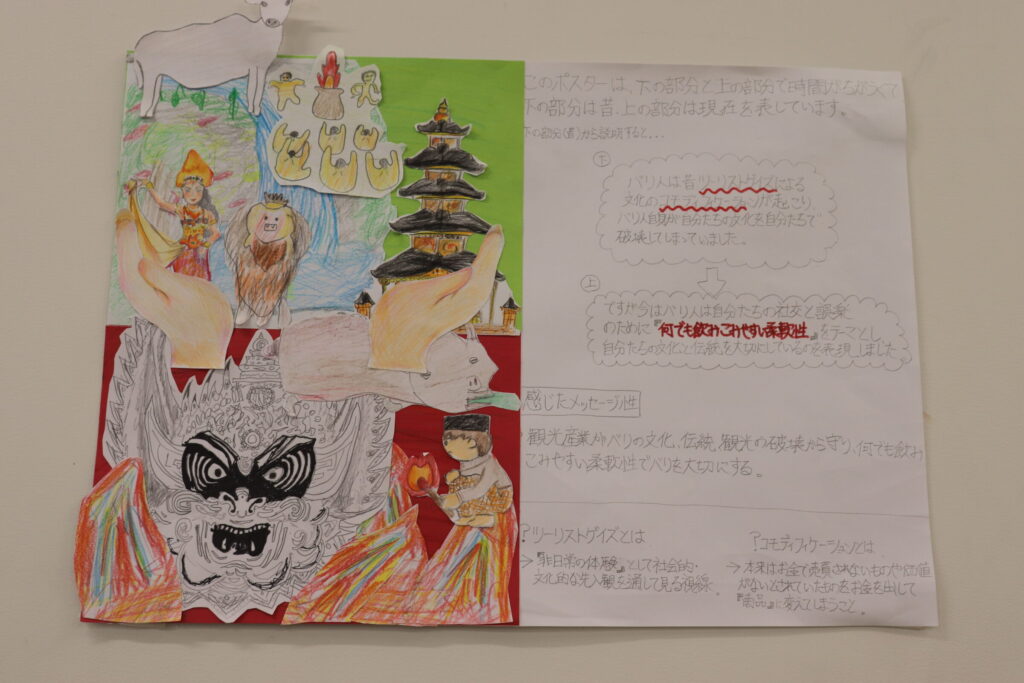 このポスターは、下の部分と上の部分で時間がちがくて
下の部分は昔、上の部分は現在を表しています。
下の部分(昔)から説明すると...
下
バリ人は昔ツーリストゲイズによる
文化のコモディフィケーションが起こり、
バリ人自身が自分たちの文化を自分たちで
破壊してしまっていました。
上
ですが今はバリ人は自分たちの社交と娯楽
のために『何でも飲みこみやすい柔軟性』をテーマとし、
自分たちの文化と伝統を大切にしているのを表現しました
感じたメッセージ性
・観光産業がバリの文化、伝統、観光の破壊から守り、何でも飲み
こみやすい柔軟性でバリを大切にする。
?ツーリストゲイズとは
→『非日常の体験』として社会的・
文化的な先入観を通して見る視線。
?コモディフィケーションとは
→本来はお金で売買されないものや価値
がないとされていたものをお金を出して
『商品』に変えてしまうこと。